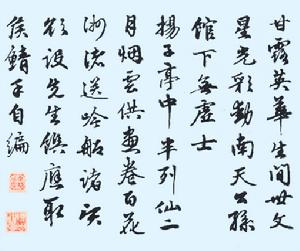 甘露英華生間世文
星光彩動南天公孫
館下無虛士
揚子亭中半列仙二
月烟雲供畫卷百花
洲渚送吟船諸
欲設先生饌應取
侯鯖手自編